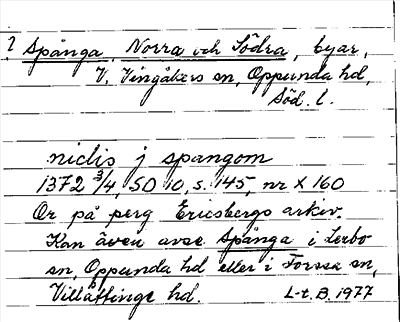 ? Spånga, Norra och Södra, byar,
V. Vingåkers sn, Oppunda hd,
Söd. l.
niclis j spangom
1372 3/4, SD 10, s. 145, nr X 160
Or på perg Ericsbergs arkiv.
Kan även avse Spånga i Lerbo
sn, Oppunda hd eller i Forssa sn,
Villåttinge hd. L-t. B. 1977